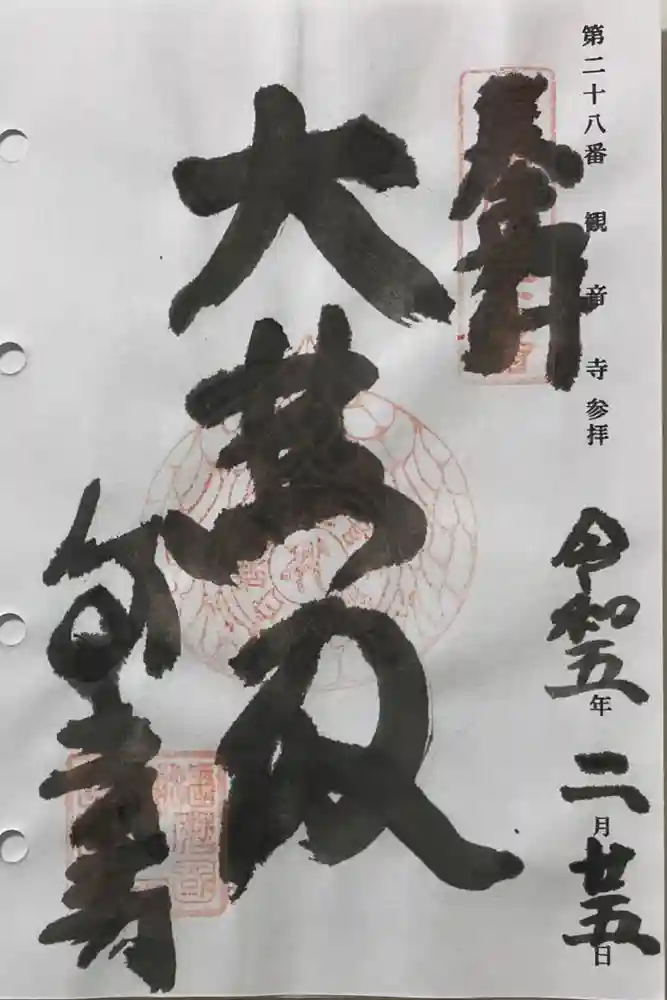 第二十八番 観音寺 参拝
令和五年 二月廿五日
大悲殿
観音寺